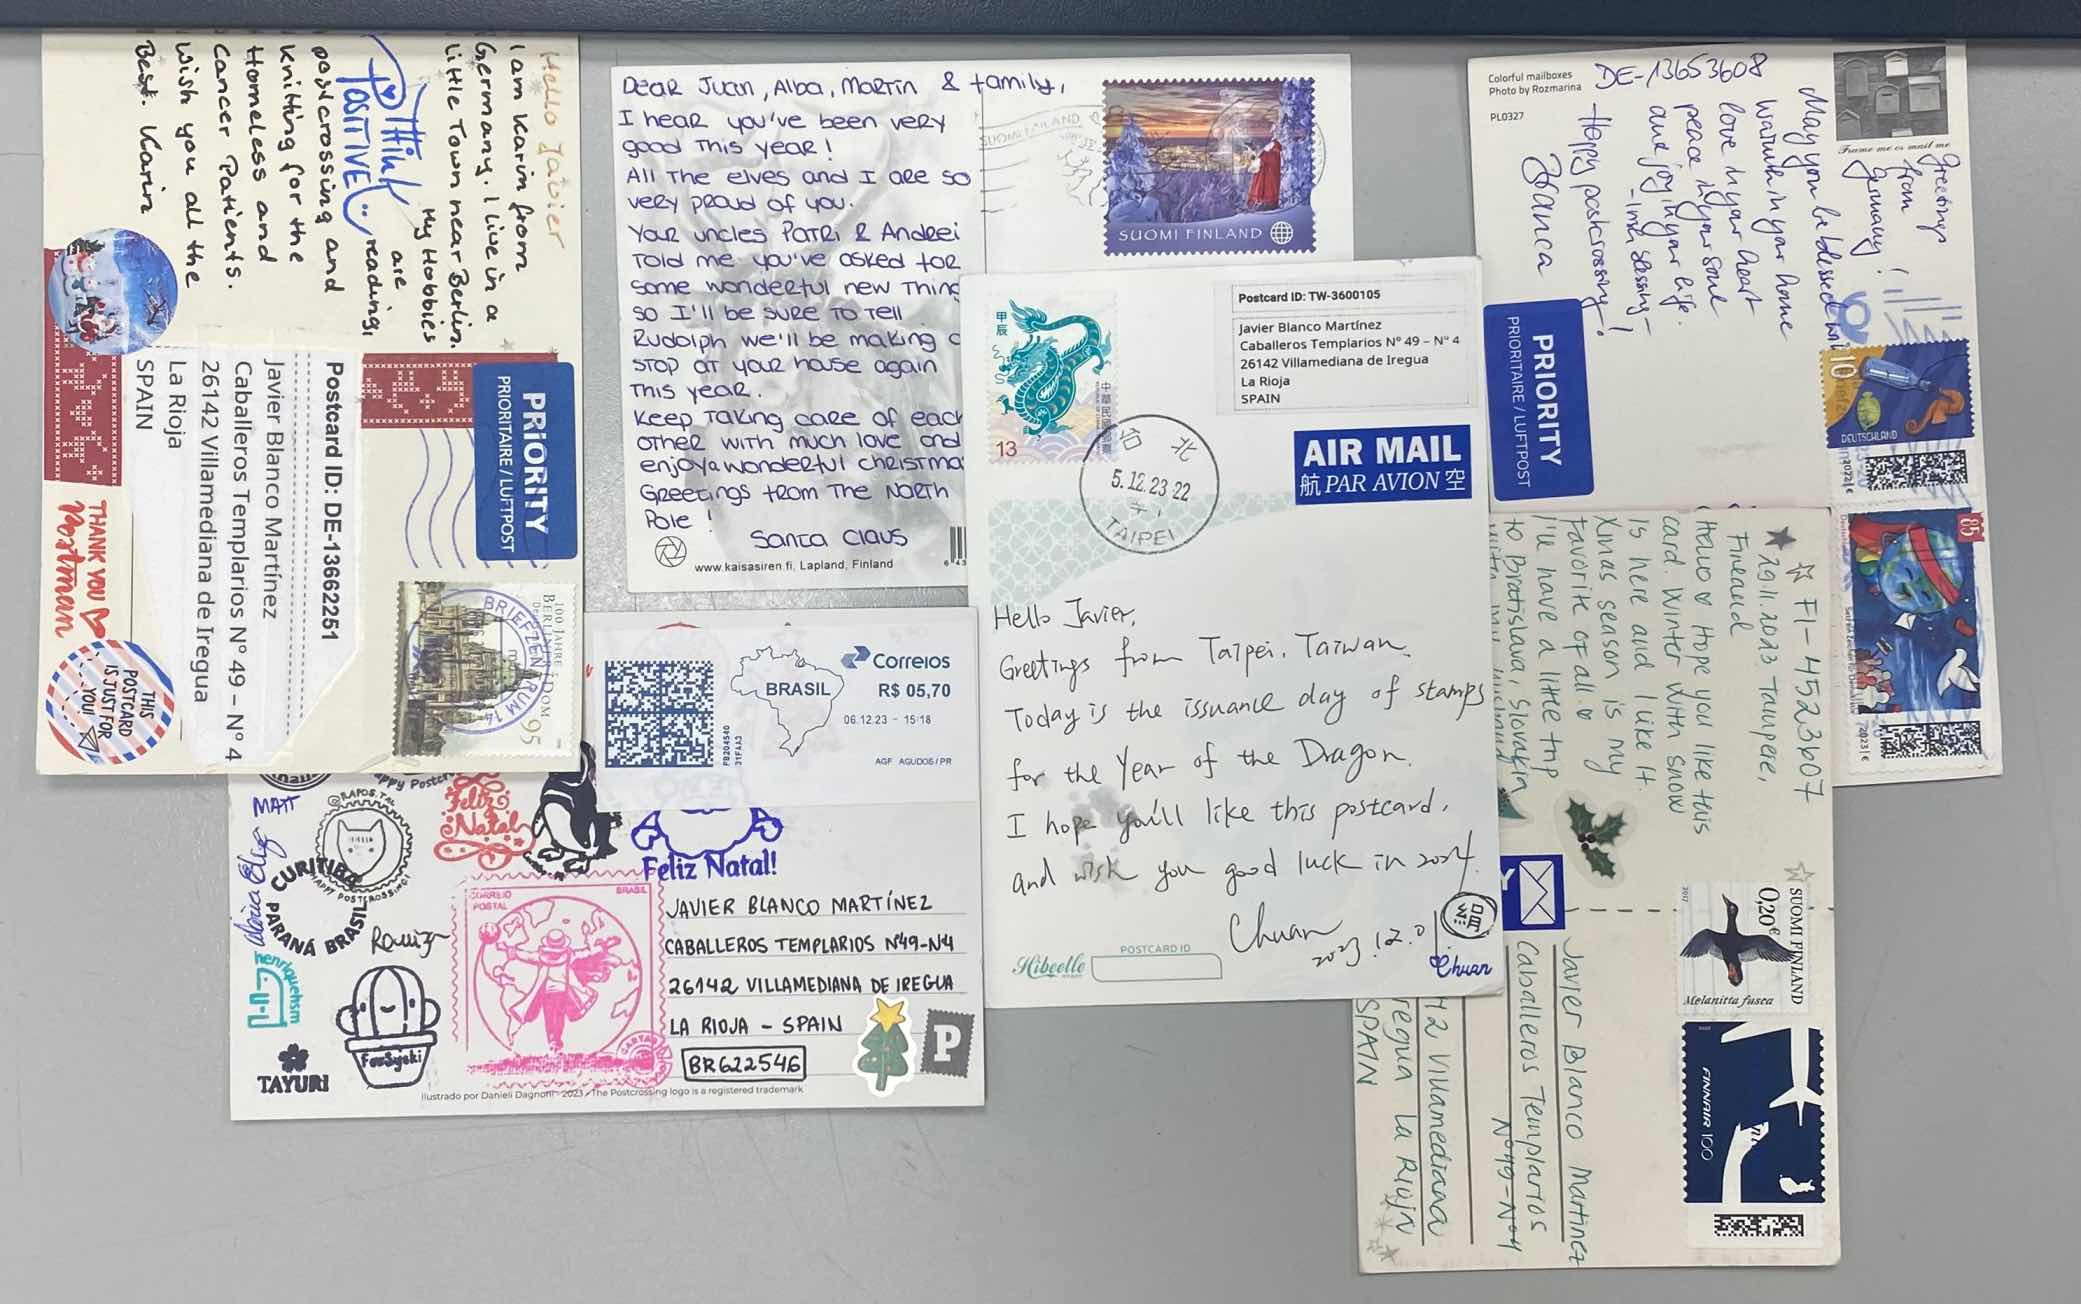 Hello Javier
I am Karin from
Germany. I live in a
little Town near Berlin.
My Hobbies
are
reading,
Think
POSITIVE
postcrossing and
knitting for the
Homeless and
Cancer Patients.
Wish you all the
Best. Karin
PRIORITY
PRIORITAIRE / LUFTPOST
Postcard ID: DE-13662251
Javier Blanco Martínez
Caballeros Templarios Nº 49 – Nº 4
26142 Villamediana de Iregua
La Rioja
SPAIN
THANK YOU
Postman
THIS
POSTCARD
IS JUST FOR
YOU!
100 JAHRE
BERLINER DOM
95
BRIEFZENTRUM
Dear Juan, Alba, Martin & family,
I hear you've been very
good this year!
All the elves and I are so
very proud of you.
Your uncles Patri & Andrei
told me you've asked for
some wonderful new thing
so I'll be sure to tell
Rudolph we'll be making a
stop at your house again
this year.
Keep taking care of each
other with much love and
enjoy a wonderful christma
Greetings from the North
Pole!
Santa Claus
www.kaisasiren.fi, Lapland, Finland
SUOMI FINLAND
SUOMI FINLAND
Correios
BRASIL
R$ 05,70
06.12.23 - 15:18
AGF AGUDOS/PR
PB204540
31FAA3
MATT
@RAPOS.TAL
Feliz
Natal
Feliz Natal!
CURITIBA
PARANÁ BRASIL
HAPPY POSTCROSSING!
henriquehsm
TAYURI
CORREIO
POSTAL
BRASIL
JAVIER BLANCO MARTÍNEZ
CABALLEROS TEMPLARIOS Nº49-Nº4
26142 VILLAMEDIANA DE IREGUA
LA RIOJA - SPAIN
BR622546
P
Ilustrado por Danieli Dagnoni - 2023 - The Postcrossing logo is a registered trademark
甲辰
中華民國郵票
13
台北
5.12.23.22
TAIPEI
Postcard ID: TW-3600105
Javier Blanco Martínez
Caballeros Templarios Nº 49 – Nº 4
26142 Villamediana de Iregua
La Rioja
SPAIN
AIR MAIL
航 PAR AVION 空
Hello Javier,
Greetings from Taipei, Taiwan.
Today is the issuance day of stamps
for the Year of the Dragon.
I hope you'll like this postcard,
and wish you good luck in 2024.
Chuan
2023.12.01
絹
Chuan
Hibeelle
POSTCARD ID
Colorful mailboxes
Photo by Rozmarina
PL0327
DE-13653608
Frame me or mail me
Greetings
from
Germany!
May you be blessed with
warmth in your home
love in your heart
peace in your soul
and joy in your life.
-Irish blessing-
Happy postcrossing!
Bianca
PRIORITY
PRIORITAIRE / LUFTPOST
10
DEUTSCHLAND
85
FI-4523607
29.11.2023 Tampere,
Finland
Hello Hope you like this
card. Winter with snow
is here and I like it.
Xmas season is my
favorite of all.
I'll have a little trip
to Bratislava, Slovakia
with my husband
SUOMI FINLAND
0,20€
Melanitta fusca
2017
FINNAIR 100
Javier Blanco Martinez
Caballeros Templarios
Nº49-Nº4
42 Villamediana
regua La Rioja
SPAIN